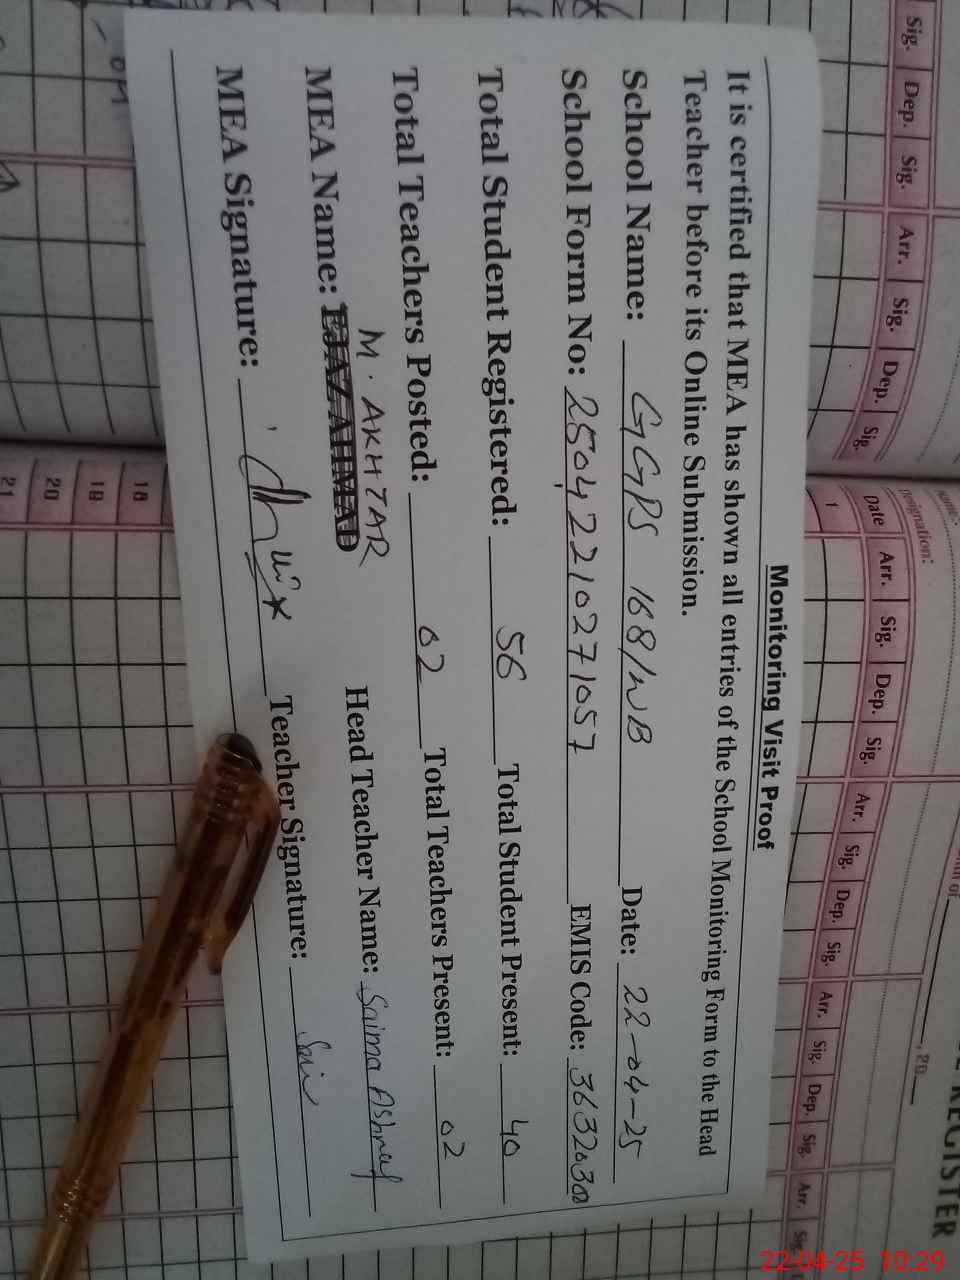 Monitoring Visit Proof
It is certified that MEA has shown all entries of the School Monitoring Form to the Head
Teacher before its Online Submission.
School Name: GGPS 168/WB Date: 22-04-25
School Form No: 25042210271057 EMIS Code: 36320300
Total Student Registered: 56 Total Student Present: 40
Total Teachers Posted: 02 Total Teachers Present: 02
M. AKHTAR
MEA Name: EJAZ AHMAD Head Teacher Name: Saima Ashraf
MEA Signature: Teacher Signature:
Sig. Dep. Sig. Arr. Sig. Dep. Sig.
Designation:
, 20
REGISTER
Date Arr. Sig. Dep. Sig. Arr. Sig. Dep. Sig. Arr. Sig. Dep. Sig. Arr. Sig.
1
18
19
20
21
22-04-25 10:29